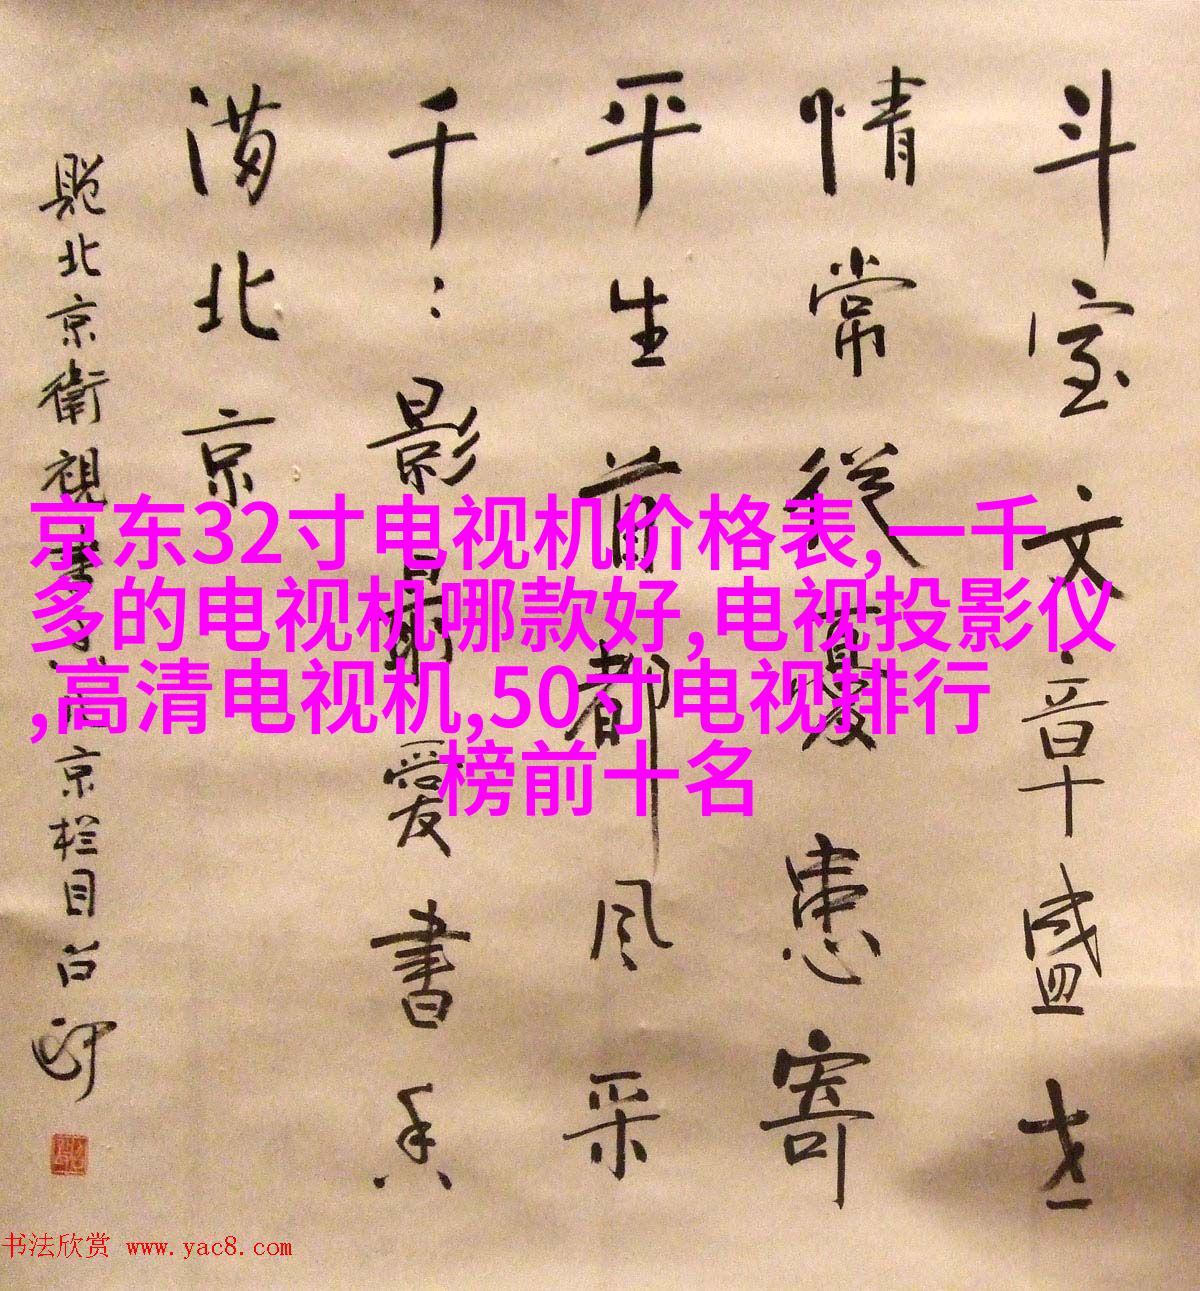 斗室文章盛世
情常從憂患寄
平生首都风采
千影最愛書香
满北京
北京衛視書京栏目
京东32寸电视机价格表,一千
多的电视机哪款好,电视投影仪
,高清电视机,50寸电视排行
榜前十名
书法欣赏 www.yac8.com